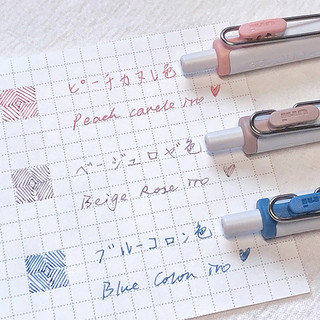 ピーチカヌレ色
Peach canele iro
ベージュロゼ色
Beige Rose iro
ブルーコロン色
Blue Colon iro